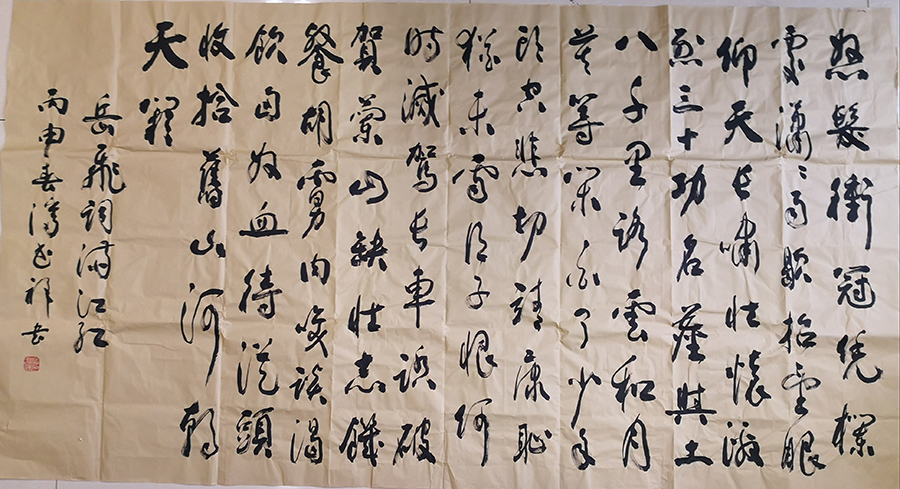 怒髮衝冠凭欄
處瀟々雨歇抬望眼
仰天長嘯壯懷激
烈三十功名塵與土
八千里路雲和月
莫等閑白了少年
頭空悲切靖康恥
猶未雪臣子恨何
時滅駕長車踏破
賀蘭山缺壯志饑
餐胡虜肉笑談渴
飲匈奴血待從頭
收拾舊山河朝
天闕
岳飛詞滿江紅
丙申春志祥书